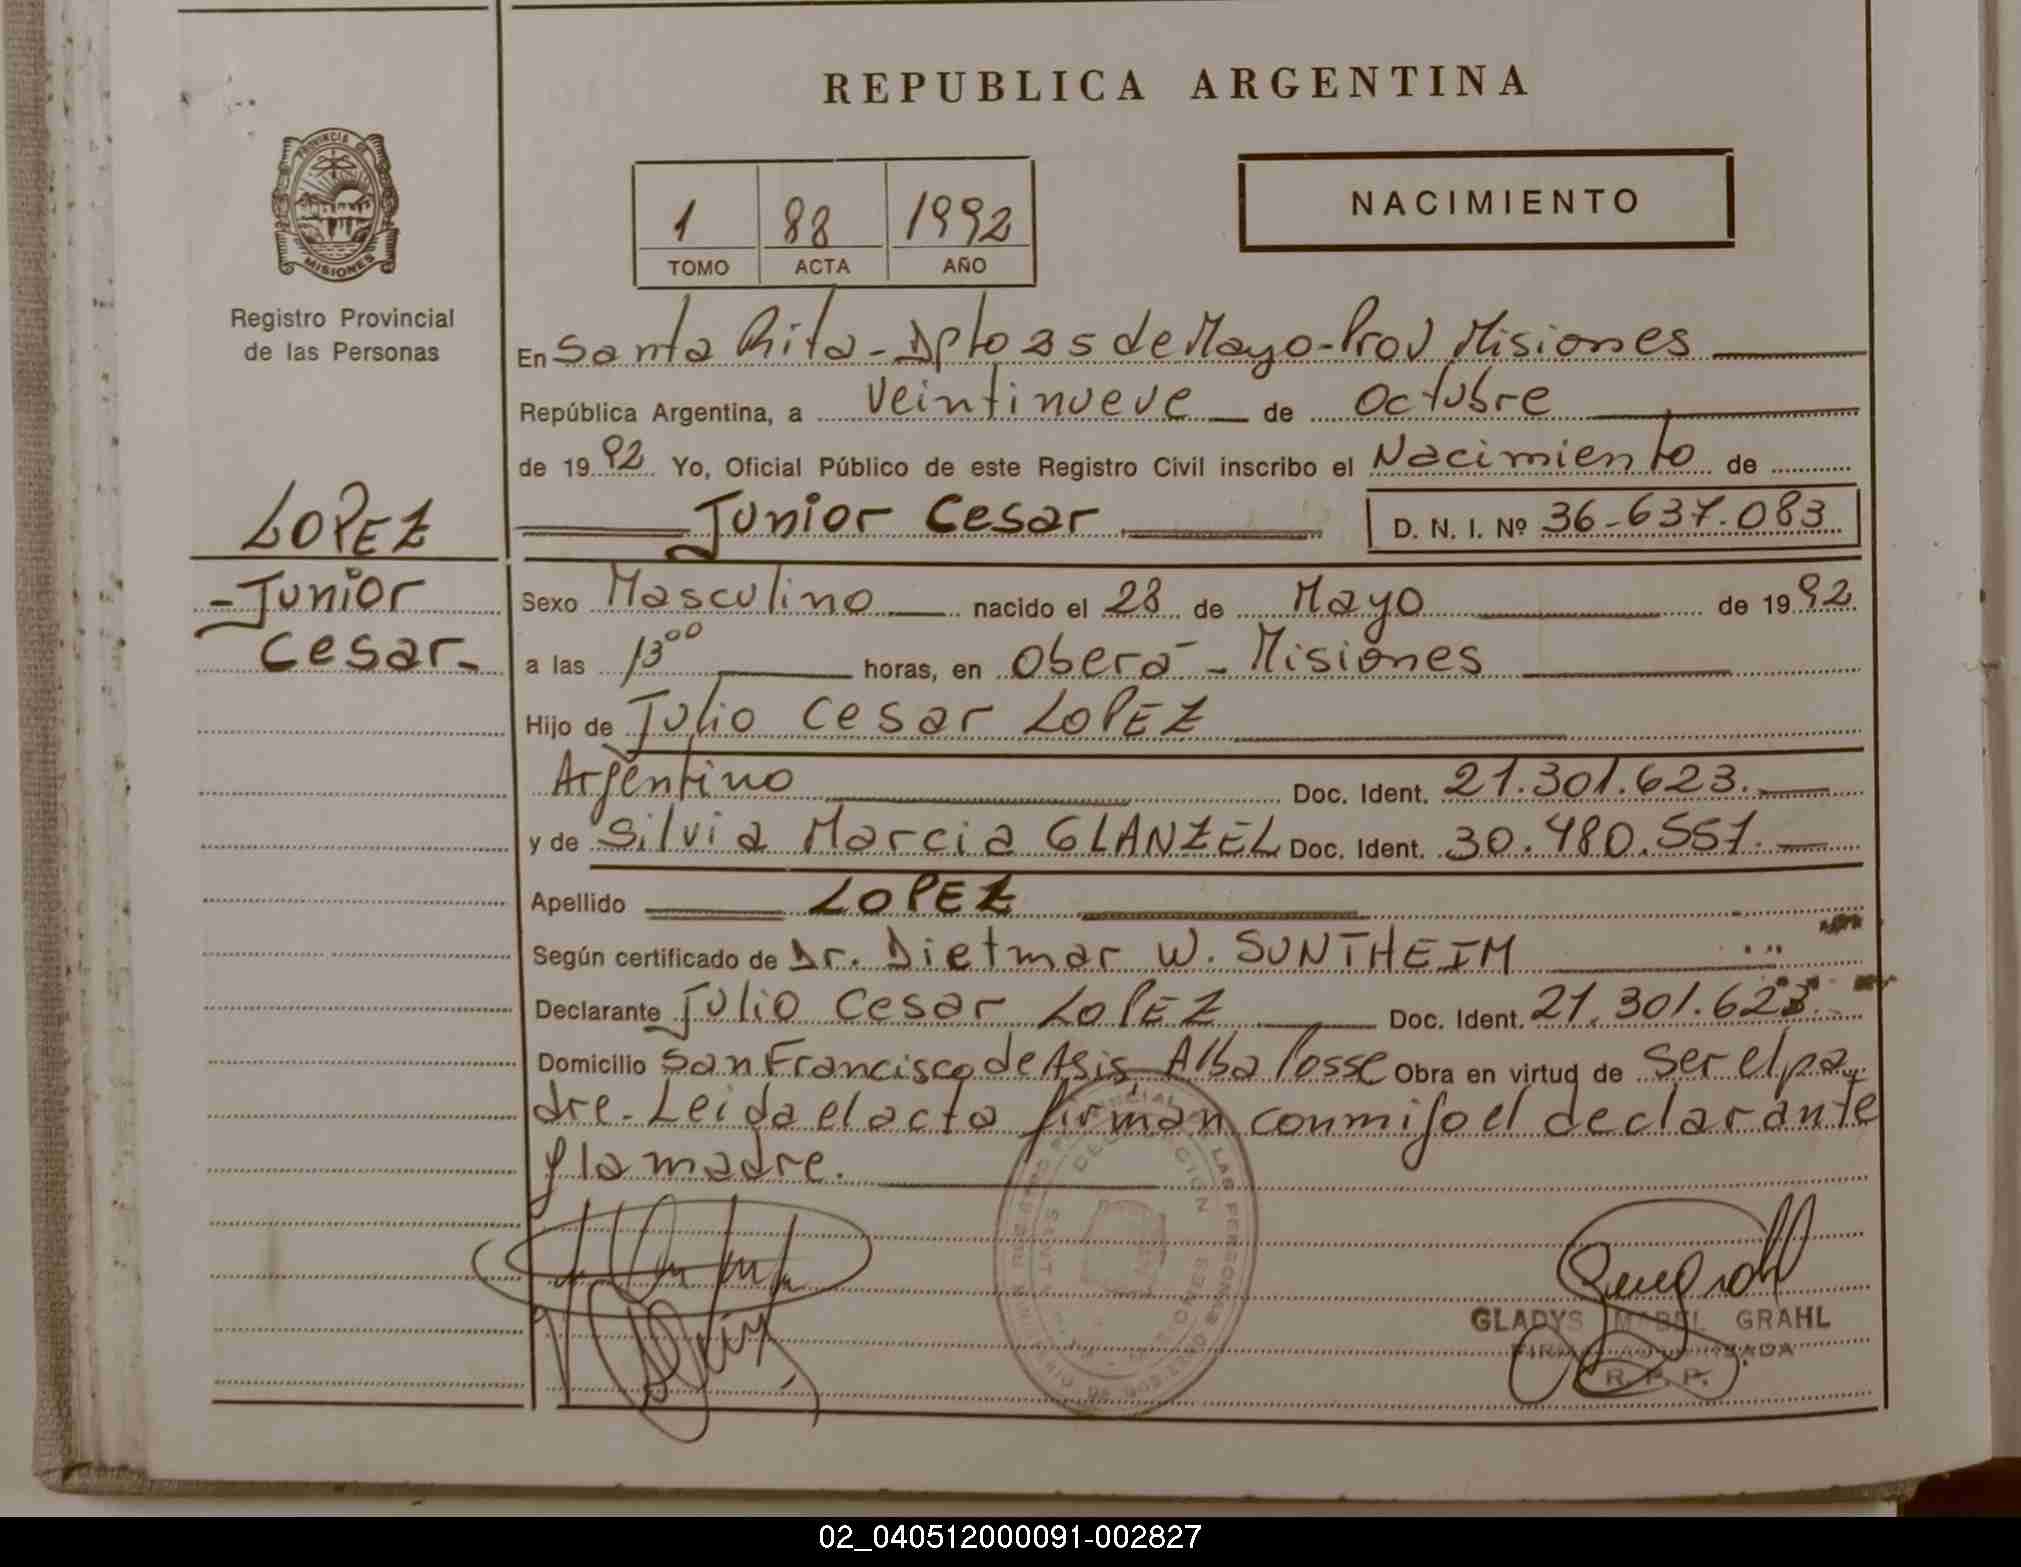 REPUBLICA ARGENTINA
PROVINCIA DE
MISIONES
Registro Provincial
de las Personas
1 88 1992
TOMO ACTA AÑO
NACIMIENTO
En Santa Rita - Dpto 25 de Mayo - Prov Misiones
República Argentina, a veintinueve de Octubre
de 1992 Yo, Oficial Público de este Registro Civil inscribo el Nacimiento de
LOPEZ
Junior Cesar D. N. I. Nº 36-637.083
- Junior
Cesar -
Sexo Masculino nacido el 28 de Mayo de 1992
a las 13⁰⁰ horas, en Oberá - Misiones
Hijo de Julio Cesar LOPEZ
Argentino Doc. Ident. 21.301.623.
y de Silvia Marcia GLANZEL Doc. Ident. 30.480.551.
Apellido LOPEZ
Según certificado de Dr. Dietmar W. SUNTHEIM
Declarante Julio Cesar LOPEZ Doc. Ident. 21.301.623
Domicilio San Francisco de Asis, Alba Posse Obra en virtud de ser el pa-
dre - Leida el acta firman conmigo el declarante
y la madre.
GLADYS MABEL GRAHL
FIRMA AUTORIZADA
R. P. P.
02_040512000091-002827